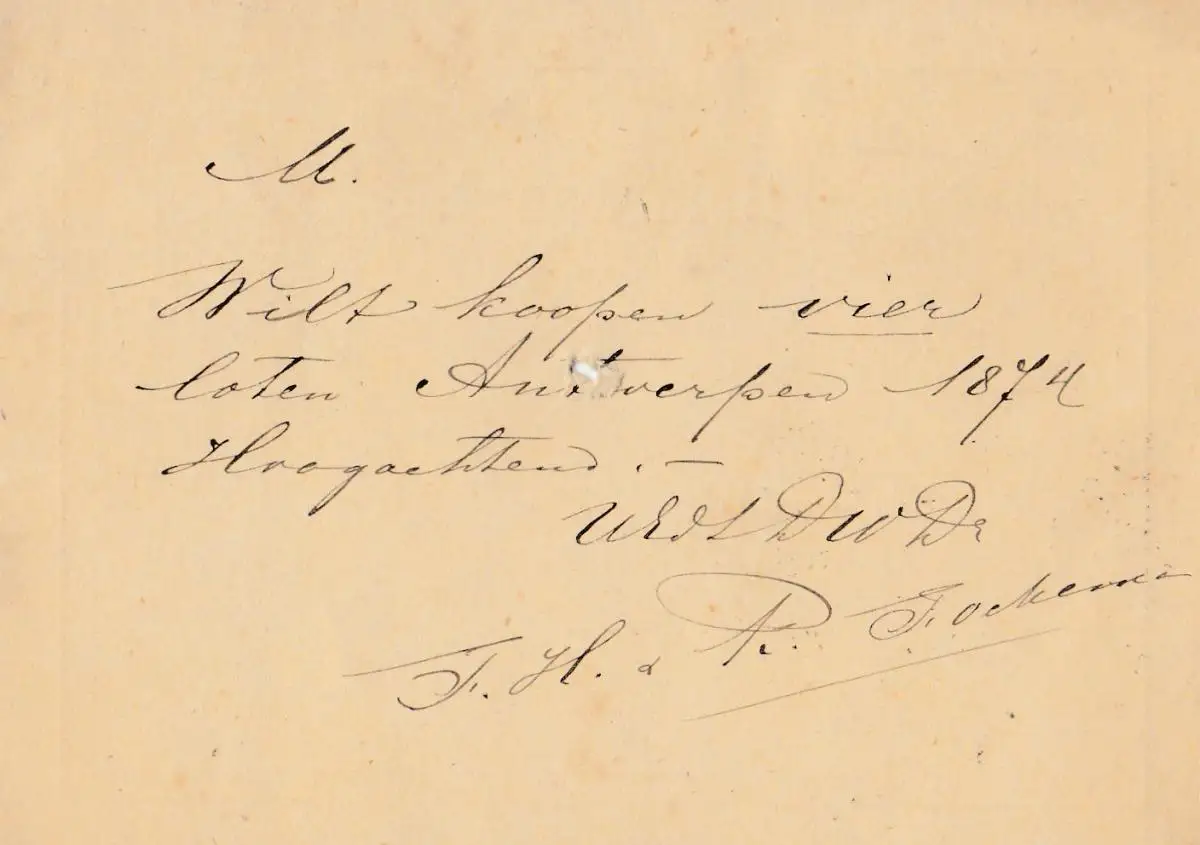 M.
Wilt koopen vier
loten Antwerpen 1874
Hoogachtend. —
UEdl DWDr
F. H. & R. Fockema